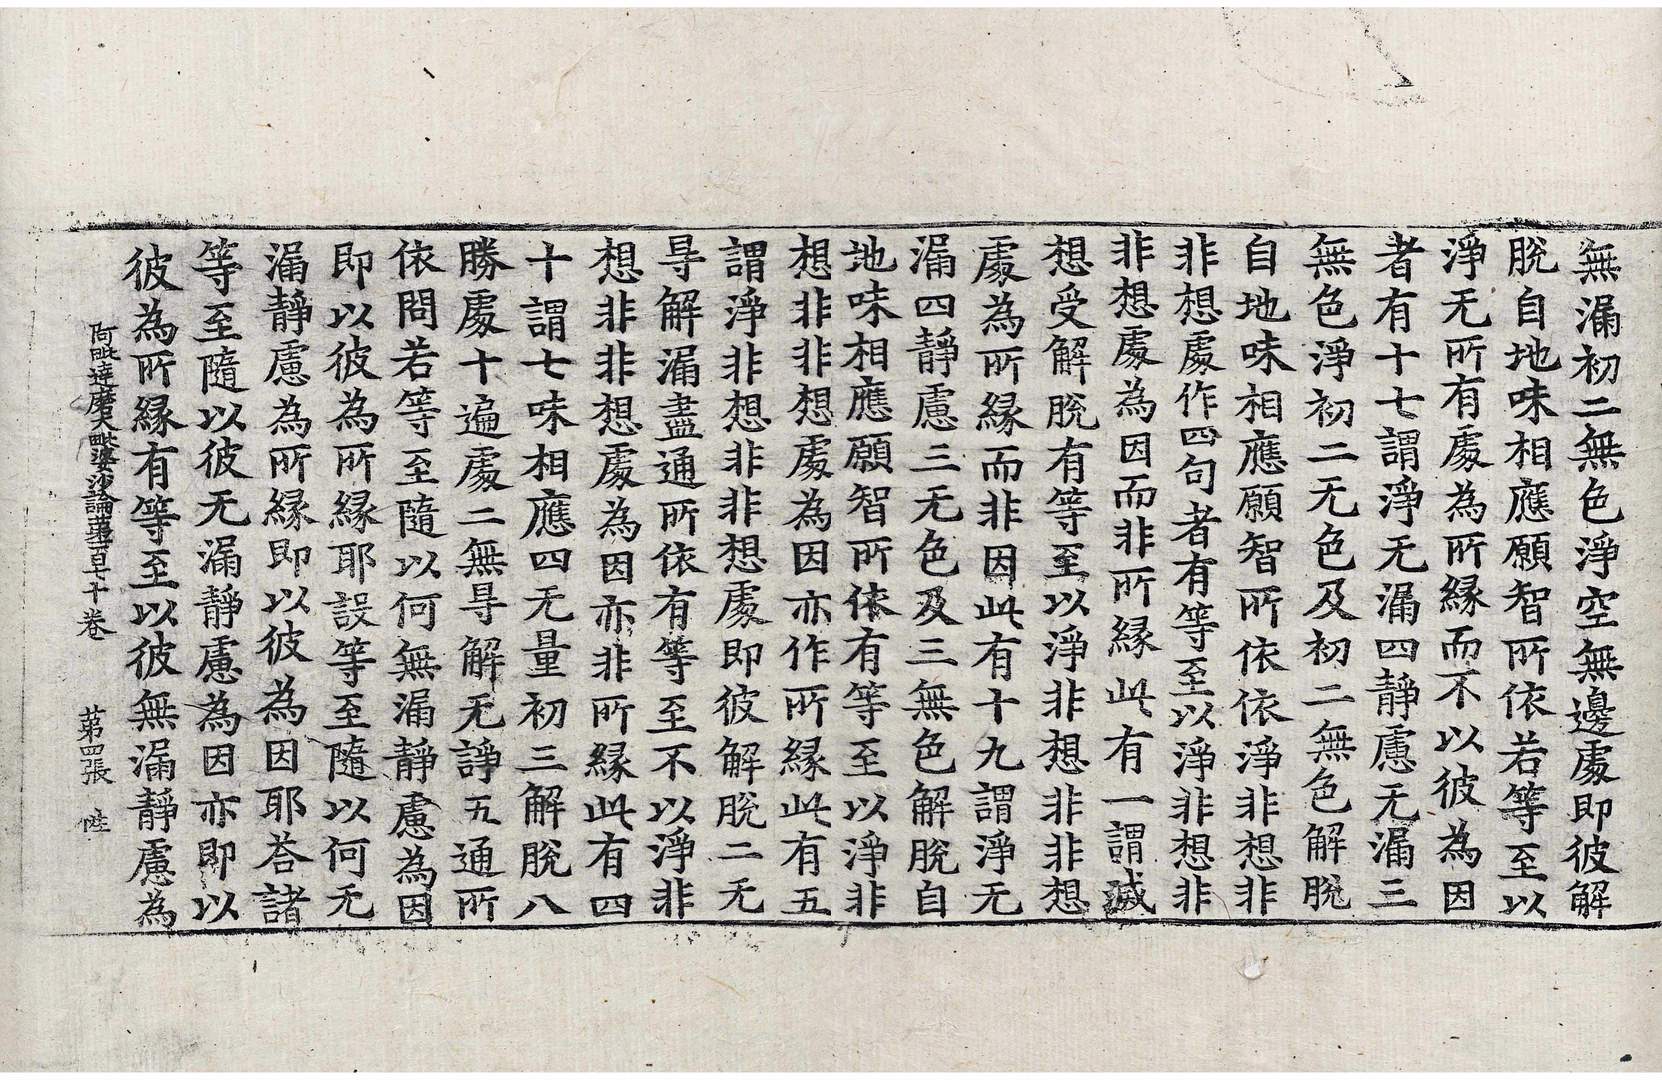 無漏初二無色淨空無邊處即彼解
脫自地味相應願智所依若等至以
淨无所有處為所縁而不以彼為因
者有十七謂淨无漏四靜慮无漏三
無色淨初二无色及初二無色解脫
自地味相應願智所依依淨非想非
非想處作四句者有等至以淨非想非
非想處為因而非所縁此有一謂滅
想受解脫有等至以淨非想非非想
處為所縁而非因此有十九謂淨无
漏四靜慮三无色及三無色解脫自
地味相應願智所依有等至以淨非
想非非想處為因亦作所縁此有五
謂淨非想非非想處即彼解脫二无
㝵解漏盡通所依有等至不以淨非
想非非想處為因亦非所縁此有四
十謂七味相應四无量初三解脫八
勝處十遍處二無㝵解无諍五通所
依問若等至隨以何無漏靜慮為因
即以彼為所縁耶設等至隨以何无
漏靜慮為所縁即以彼為因耶荅諸
等至隨以彼无漏靜慮為因亦即以
彼為所縁有等至以彼無漏靜慮為
阿毗達磨大毗婆沙論第百七十卷 第四張 陛